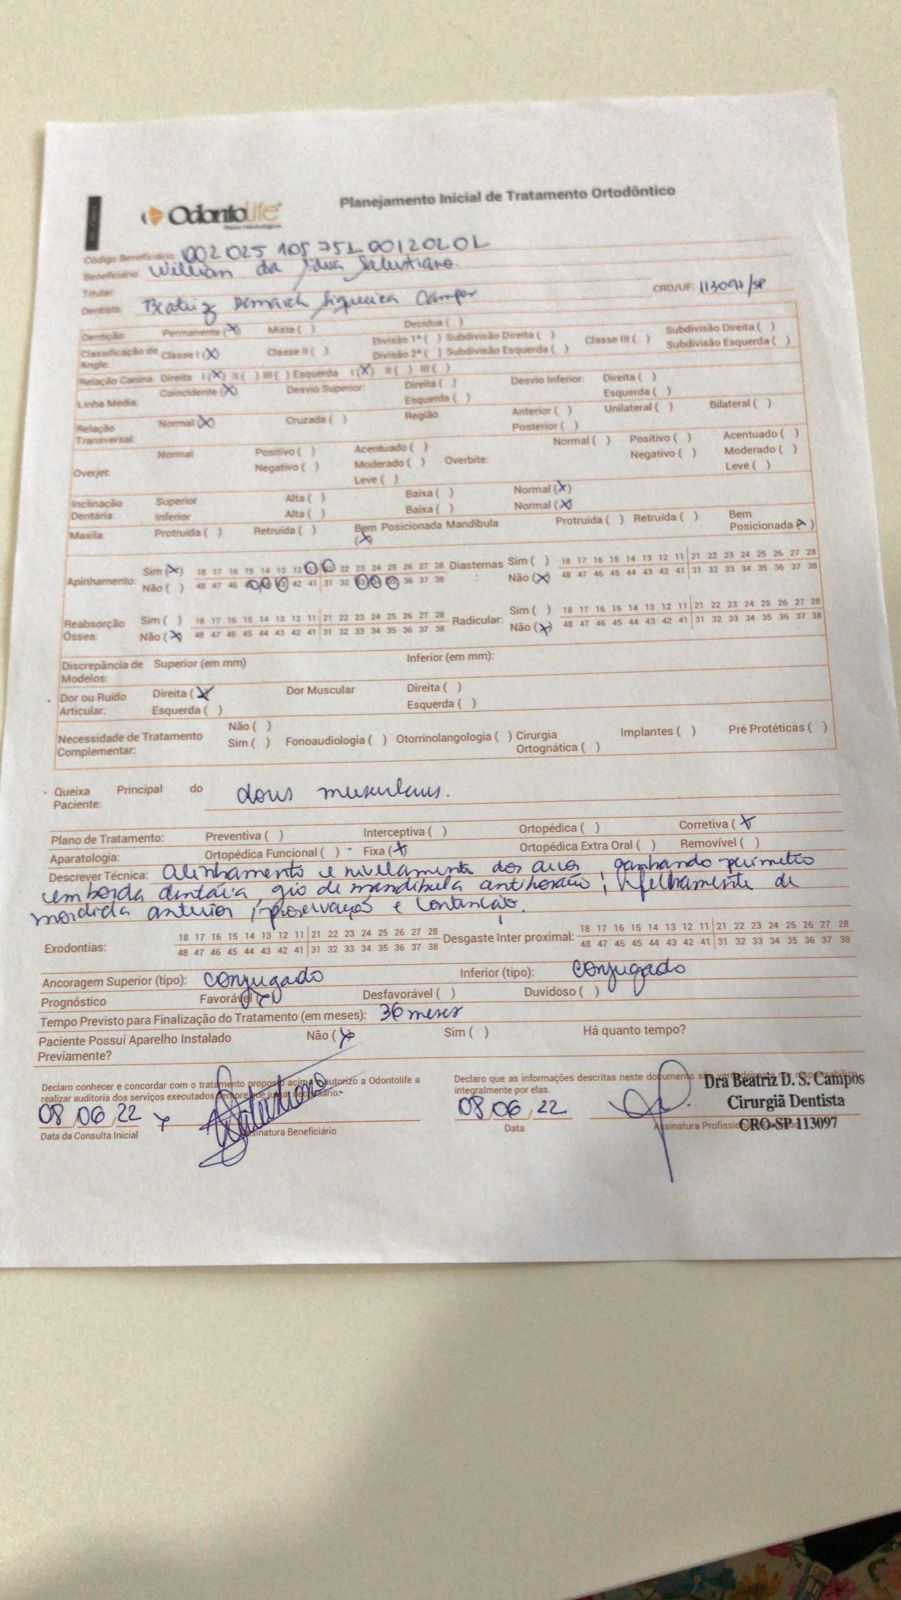 OdontoLife
Planejamento Inicial de Tratamento Ortodôntico
Código Beneficiário: 002025 108 75L 0012020L
Beneficiário: William da Silva Salustiano.
Titular:
Dentista: Beatriz Siqueira Campos CRO/UF: 113097/SP
Dentição: Permanente (X) Mista ( ) Decídua ( )
Classificação de Angle: Classe I (X) Classe II ( ) Divisão 1ª ( ) Subdivisão Direita ( ) Classe III ( ) Subdivisão Direita ( )
Divisão 2ª ( ) Subdivisão Esquerda ( ) Subdivisão Esquerda ( )
Relação Canina: Direita I (X) II ( ) III ( ) Esquerda I (X) II ( ) III ( )
Linha Média: Coincidente (X) Desvio Superior: Direita ( ) Desvio Inferior: Direita ( )
Esquerda ( ) Esquerda ( )
Relação Transversal: Normal (X) Cruzada ( ) Região Anterior ( ) Unilateral ( ) Bilateral ( )
Posterior ( )
Overjet: Normal Positivo ( ) Acentuado ( ) Overbite: Normal ( ) Positivo ( ) Acentuado ( )
Negativo ( ) Moderado ( ) Negativo ( ) Moderado ( )
Leve ( ) Leve ( )
Inclinação Dentária: Superior Alta ( ) Baixa ( ) Normal (X)
Inferior Alta ( ) Baixa ( ) Normal (X)
Maxila: Protruída ( ) Retruída ( ) Bem Posicionada (X) Mandíbula Protruída ( ) Retruída ( ) Bem Posicionada (X)
Apinhamento: Sim (X) 18 17 16 15 14 13 12 22 23 24 25 26 27 28 Diastemas: Sim ( ) 18 17 16 15 14 13 12 11 21 22 23 24 25 26 27 28
Não ( ) 48 47 46 42 41 31 32 36 37 38 Não (X) 48 47 46 45 44 43 42 41 31 32 33 34 35 36 37 38
Reabsorção Óssea: Sim ( ) 18 17 16 15 14 13 12 11 21 22 23 24 25 26 27 28 Radicular: Sim ( ) 18 17 16 15 14 13 12 11 21 22 23 24 25 26 27 28
Não (X) 48 47 46 45 44 43 42 41 31 32 33 34 35 36 37 38 Não (X) 48 47 46 45 44 43 42 41 31 32 33 34 35 36 37 38
Discrepância de Modelos: Superior (em mm) Inferior (em mm):
Dor ou Ruído Articular: Direita (X) Dor Muscular Direita ( )
Esquerda ( ) Esquerda ( )
Necessidade de Tratamento Complementar: Não ( )
Sim ( ) Fonoaudiologia ( ) Otorrinolangologia ( ) Cirurgia Ortognática ( ) Implantes ( ) Pré Protéticas ( )
Queixa Principal do Paciente: dores musculares.
Plano de Tratamento: Preventiva ( ) Interceptiva ( ) Ortopédica ( ) Corretiva (X)
Aparatologia: Ortopédica Funcional ( ) Fixa (X) Ortopédica Extra Oral ( ) Removível ( )
Descrever Técnica: Alinhamento e nivelamento dos arcos, ganhando perimetro
em borda dentária, giro de mandíbula antihorário, p/ fechamento de
mordida anterior, preservação e contenção.
Exodontias: 18 17 16 15 14 13 12 11 21 22 23 24 25 26 27 28 Desgaste Inter proximal: 18 17 16 15 14 13 12 11 21 22 23 24 25 26 27 28
48 47 46 45 44 43 42 41 31 32 33 34 35 36 37 38 48 47 46 45 44 43 42 41 31 32 33 34 35 36 37 38
Ancoragem Superior (tipo): conjugado Inferior (tipo): conjugado
Prognóstico Favorável (X) Desfavorável ( ) Duvidoso ( )
Tempo Previsto para Finalização do Tratamento (em meses): 36 meses
Paciente Possui Aparelho Instalado Previamente? Não (X) Sim ( ) Há quanto tempo?
Declaro conhecer e concordar com o tratamento proposto acima autorizo a Odontolife a
realizar auditoria dos serviços executados sempre que julgar necessário.
08 06, 22 x
Data da Consulta Inicial Assinatura Beneficiário
Declaro que as informações descritas neste documento são verdadeiras me responsabilizo
integralmente por elas.
08,06, 22
Data Assinatura Profissional
Dra Beatriz D. S. Campos
Cirurgiã Dentista
CRO-SP 113097